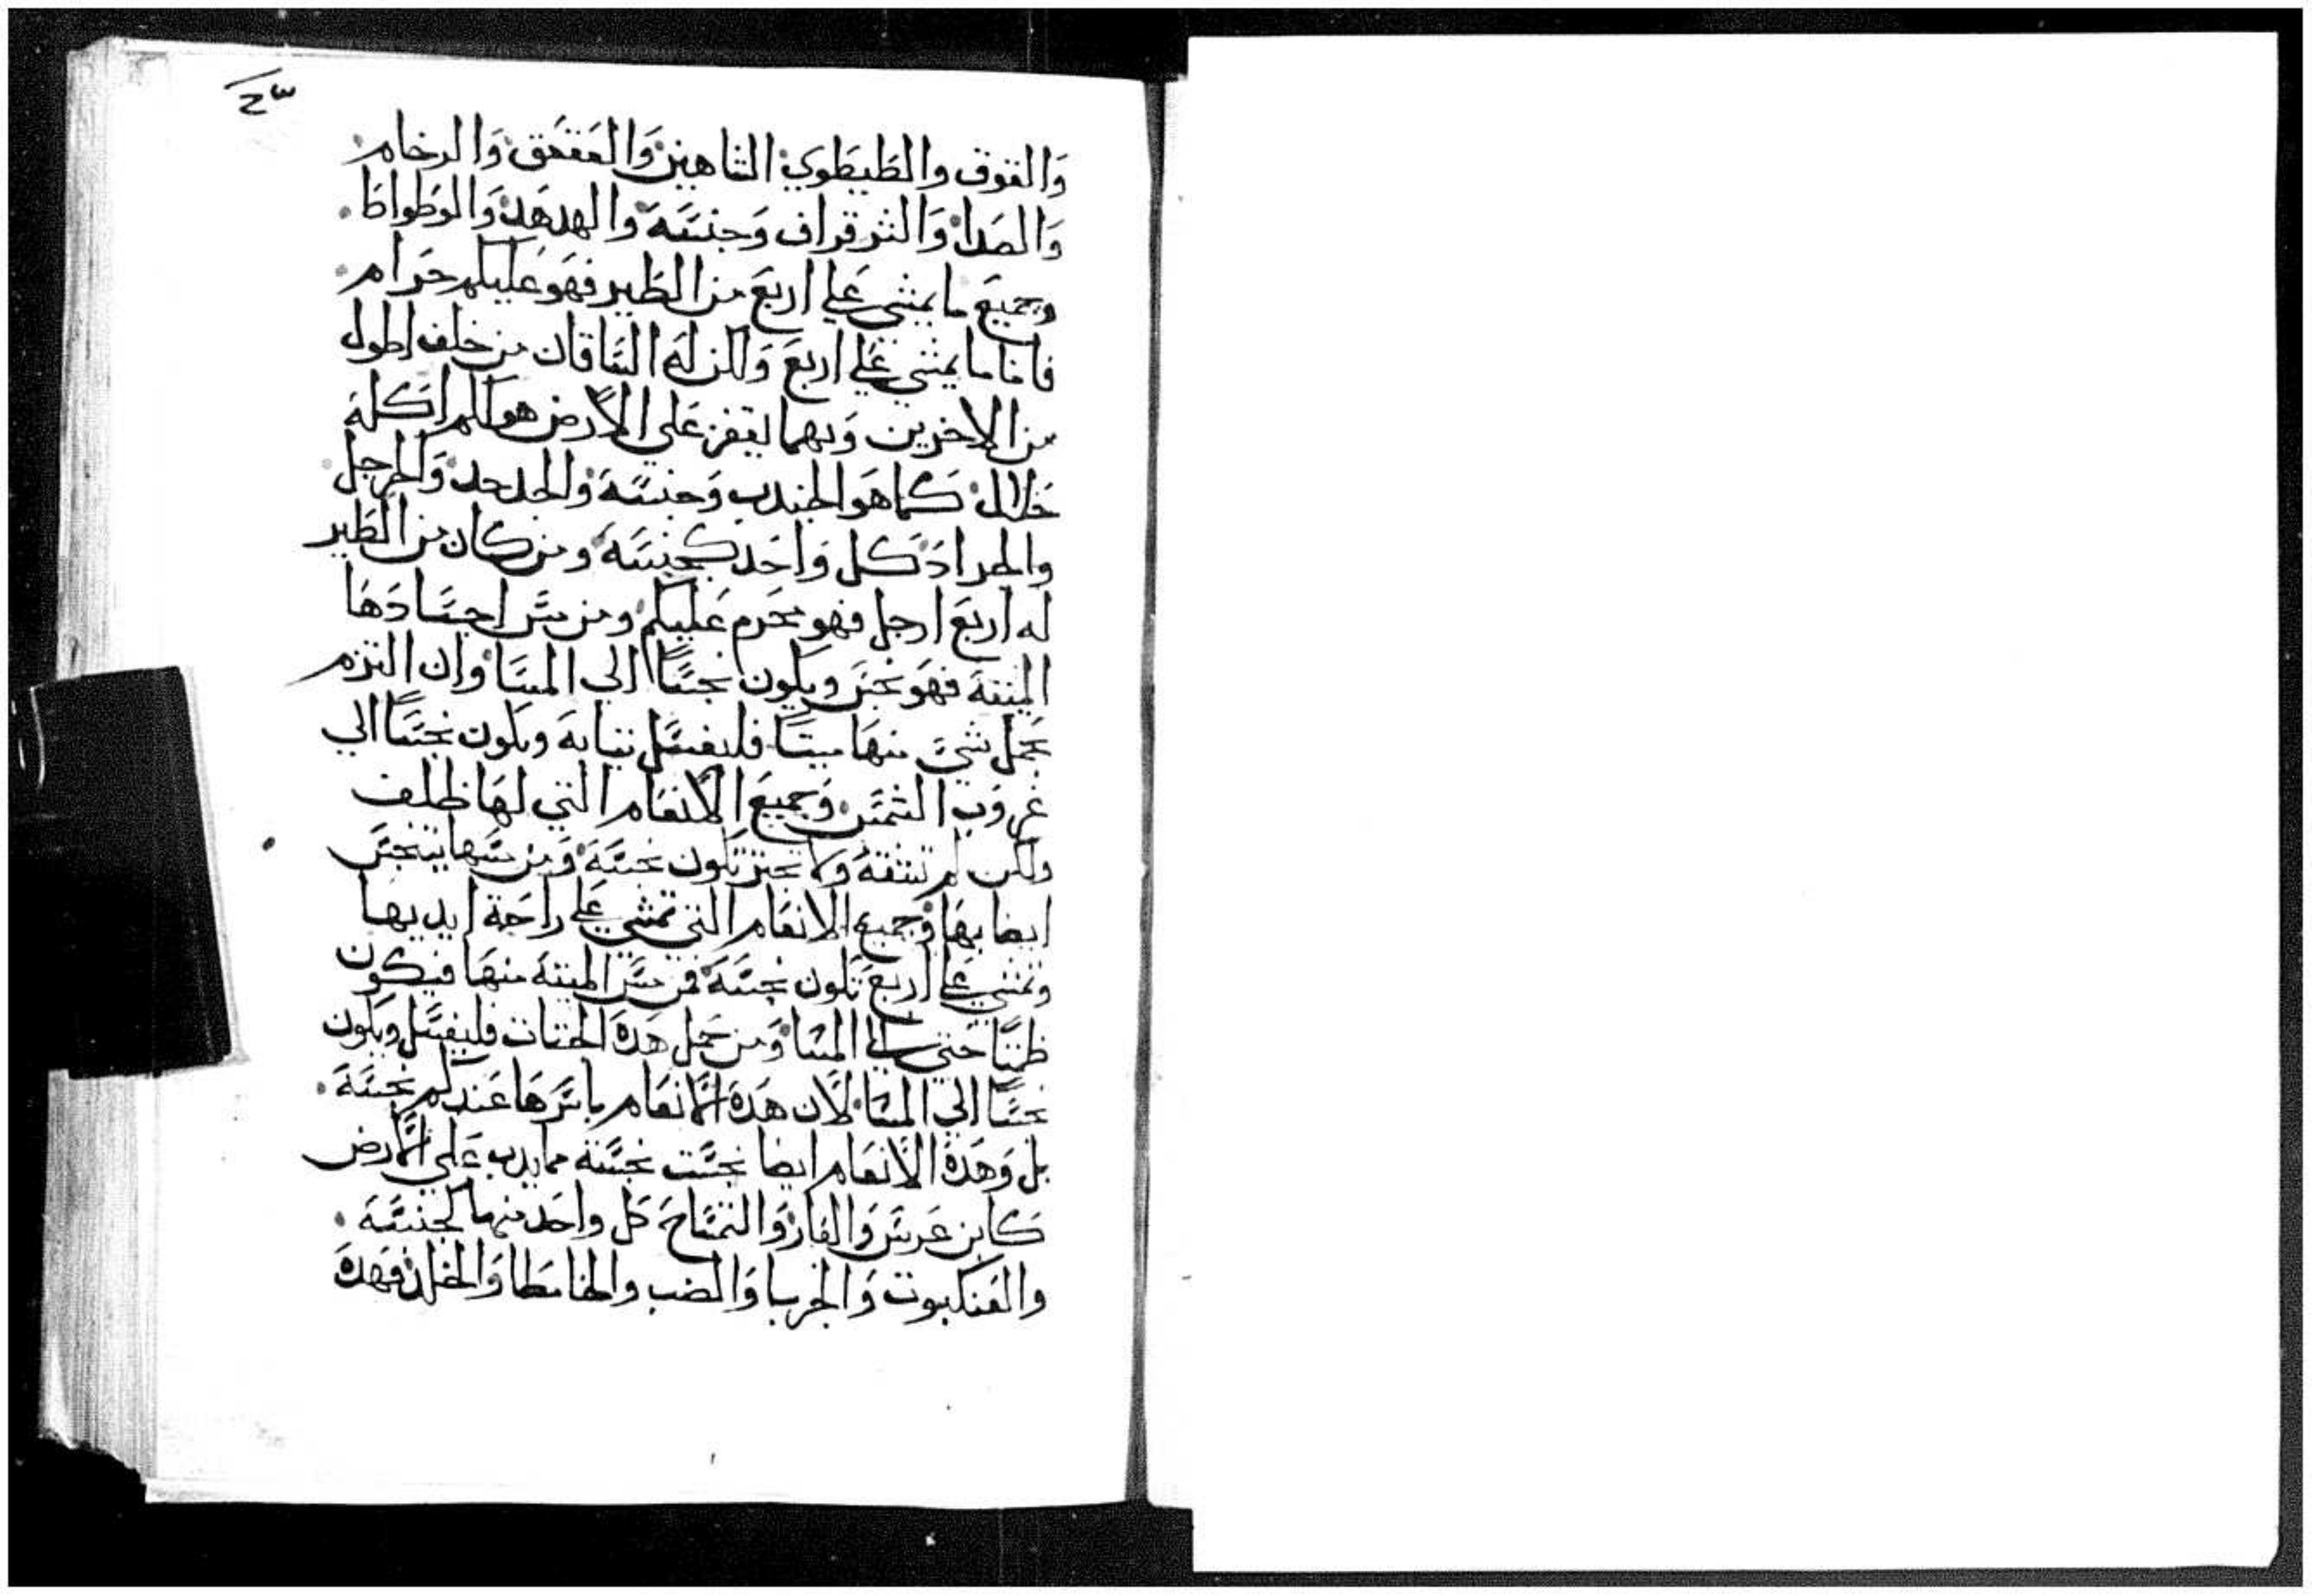 وَالقوق والطَيطَوي الشاهين وَالعَقعَق وَالرخام
وَالصَدا وَالشرقراق وَجنسَه وَالهدهَد وَالوَطواط
وجميعَ ما يمشي عَلي اربَعَ من الطَير فهَو عَليكم حَرام
فاما ما يمشي عَلي اربعَ وَلكن لهَ السَاقان من خلف اطول
من الاخرين وَبهما يقفز عَلي الاًرض هو لكم اَكله
حَلال كما هَو الجندب وَجنسَه والجدجد وَالحرجل
والجراد كَل وَاحَد كجنسَه ومن كان من الطَير
له اربَعَ ارجل فهو محَرم عَليكم ومن مسَ اجسَادَهَا
الميتة فهَو نجسَ ويكون نجسًَا الي المسَا وان التزم
بحَمل شيَ منهَا ميتاً فليغسَل ثيابهَ ويكون نجسًَا الي
غروَب الشمسَ وَجميعَ الاًنعَام التي لهَا ظلف
ولكن لم تشقهَ ولا تجتر تكون نجسَة وَمن مسَها يتنجسَ
ايضا بهَا وَجميع الانعَام التي تمشي عَلي راحَة ايديها
وتمشي عَلي اربَعَ تكون نجسَة فمن مسَ الميتة منهَا فيكون
حَتي الي المسَا وَمن حَمل هَدهَ فليغسَل ويكون
نجسًَا الي المسَا لاًن هَدهَ الاًنعَام باسَرهَا عَندكم نجسَة
بل وَهَدهَ الاًنعَام ايضا نجسَة مما يدب عَلي الاًرض
كابن عَرسَ وَالفار وَالتمسَاحَ كل واحَد منهما كجنسَه
والعَنكبوت وَالحربا وَالضب والخلد فهَدهَ